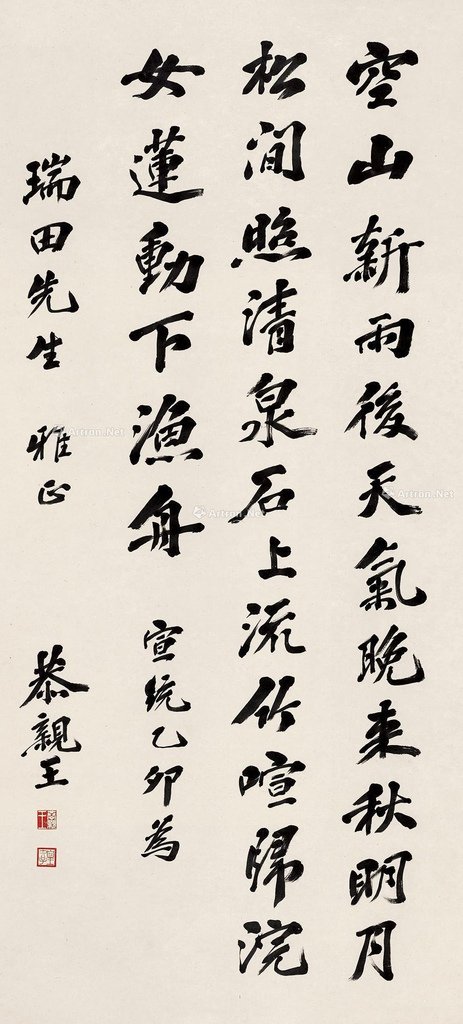 空山新雨後天氣晚來秋明月
松澗照清泉石上流竹喧歸浣
女蓮動下漁舟 宣統乙卯為
瑞田先生 雅正
恭親王
Artron.Net
Artron.Net
Artron.Net